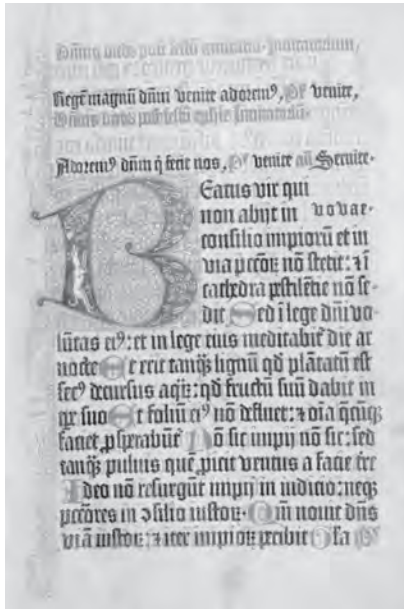 Regē magnū dñm venite adorem⁹, Ps̄ venite,
Adorem⁹ dñm q̄ fecit nos, Ps̄ venite añ Seruite.
BEatus vir qui
non abijt in euouae.
consilio impiorū et in
via pctōꝝ nō stetit: ⁊ ī
cathedra pestilētie nō se-
dit Sed ī lege dñi vo-
lūtas ei⁹: et in lege eius meditabit̄ die ac
nocte Et erit tanq̄ꝫ lignū qd̄ plātatū est
sec⁹ decursus aqꝝ: qd̄ fructū suū dabit in
tꝑe suo Et foliū ei⁹ nō defluet: ⁊ oīa q̄cūqꝫ
faciet ꝓsperabūt̄ Nō sic impij nō sic: sed
tanq̄ꝫ puluis quē ꝓicit ventus a facie t̄re
Ideo nō resurgūt impij in iudicio: neqꝫ
pctōres in ↄsilio iustoꝝ Qm̄ nouit dñs
viā iustoꝝ: ⁊ iter impioꝝ ꝑibit Gl̄a P̄